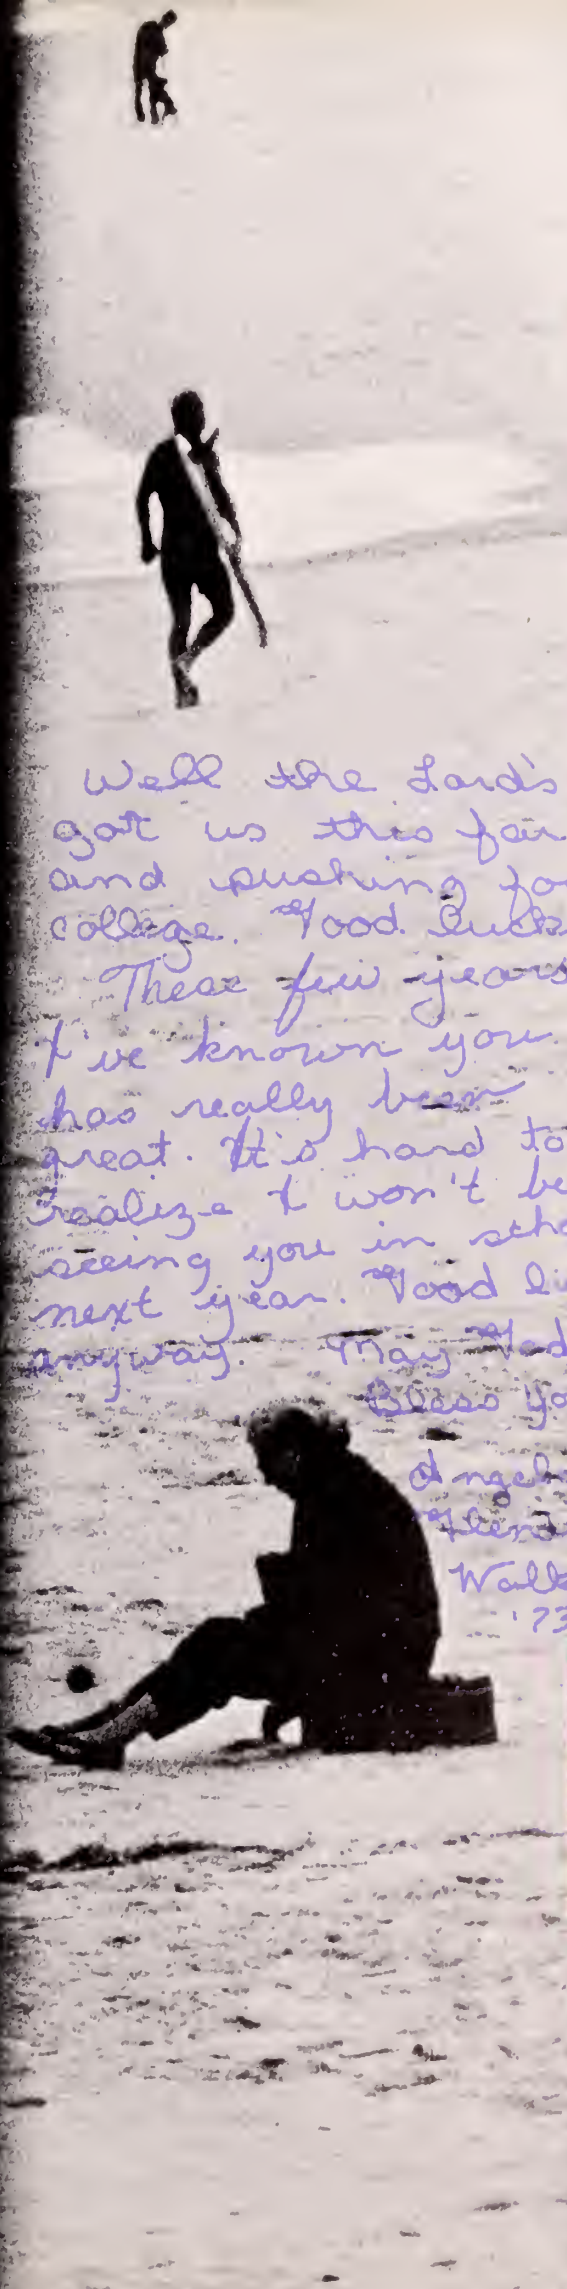 Well the Lord's
got us this far
and pushing fo
college. Good luck
These few years
I've known you
has really been
great. It's hard to
realize I won't be
seeing you in scho
next year. Good lu
anyway. May God
Bless yo
Angel
Glen
Walk
'73